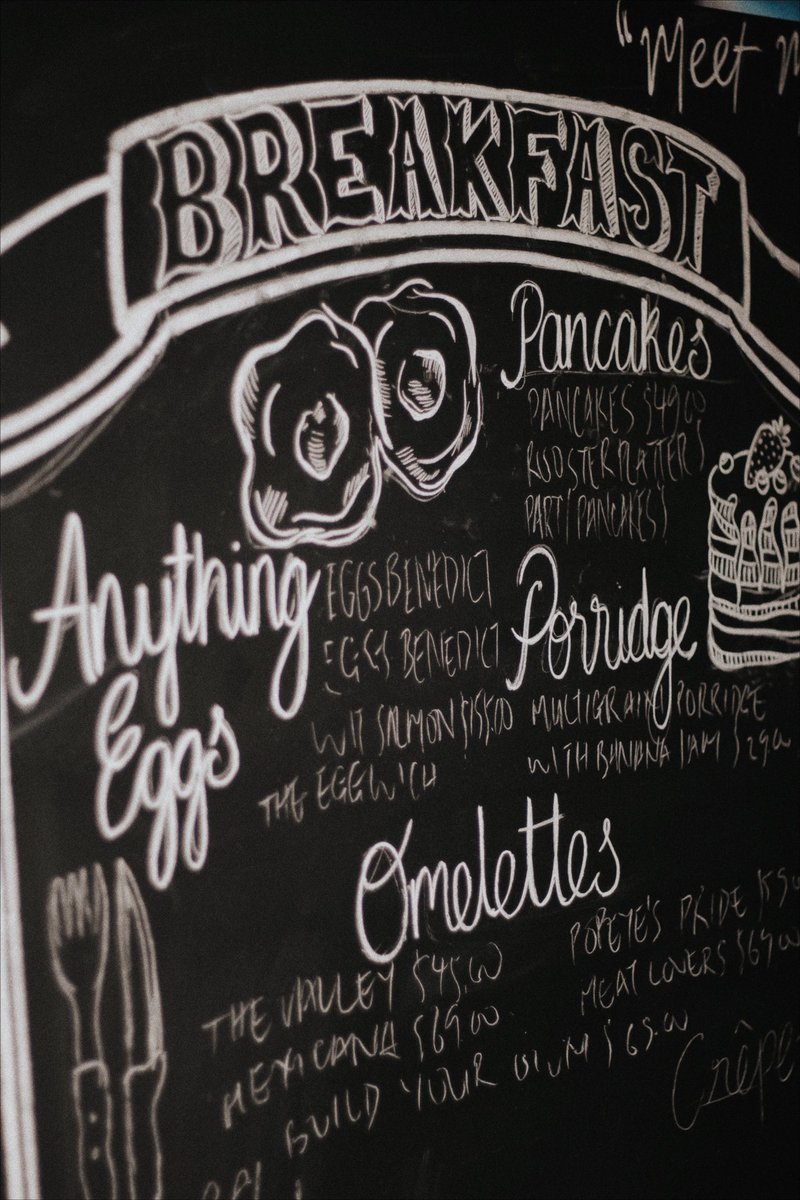 "Meet
BREAKFAST
Pancakes
PANCAKES $49.00
ROOSTER PLATTER
PANCAKES
Anything
Eggs
EGGS BENEDICT
EGGS BENEDICT
SALMON
THE EGGWICH
Porridge
MULTIGRAIN PORRIDGE
WITH BANANA JAM $29.00
Omelettes
THE VALLEY $45.00
MEXICANA $69.00
BUILD YOUR $65.00
POPEYE'S PRIDE
MEAT LOVERS $69.00
Crêpe